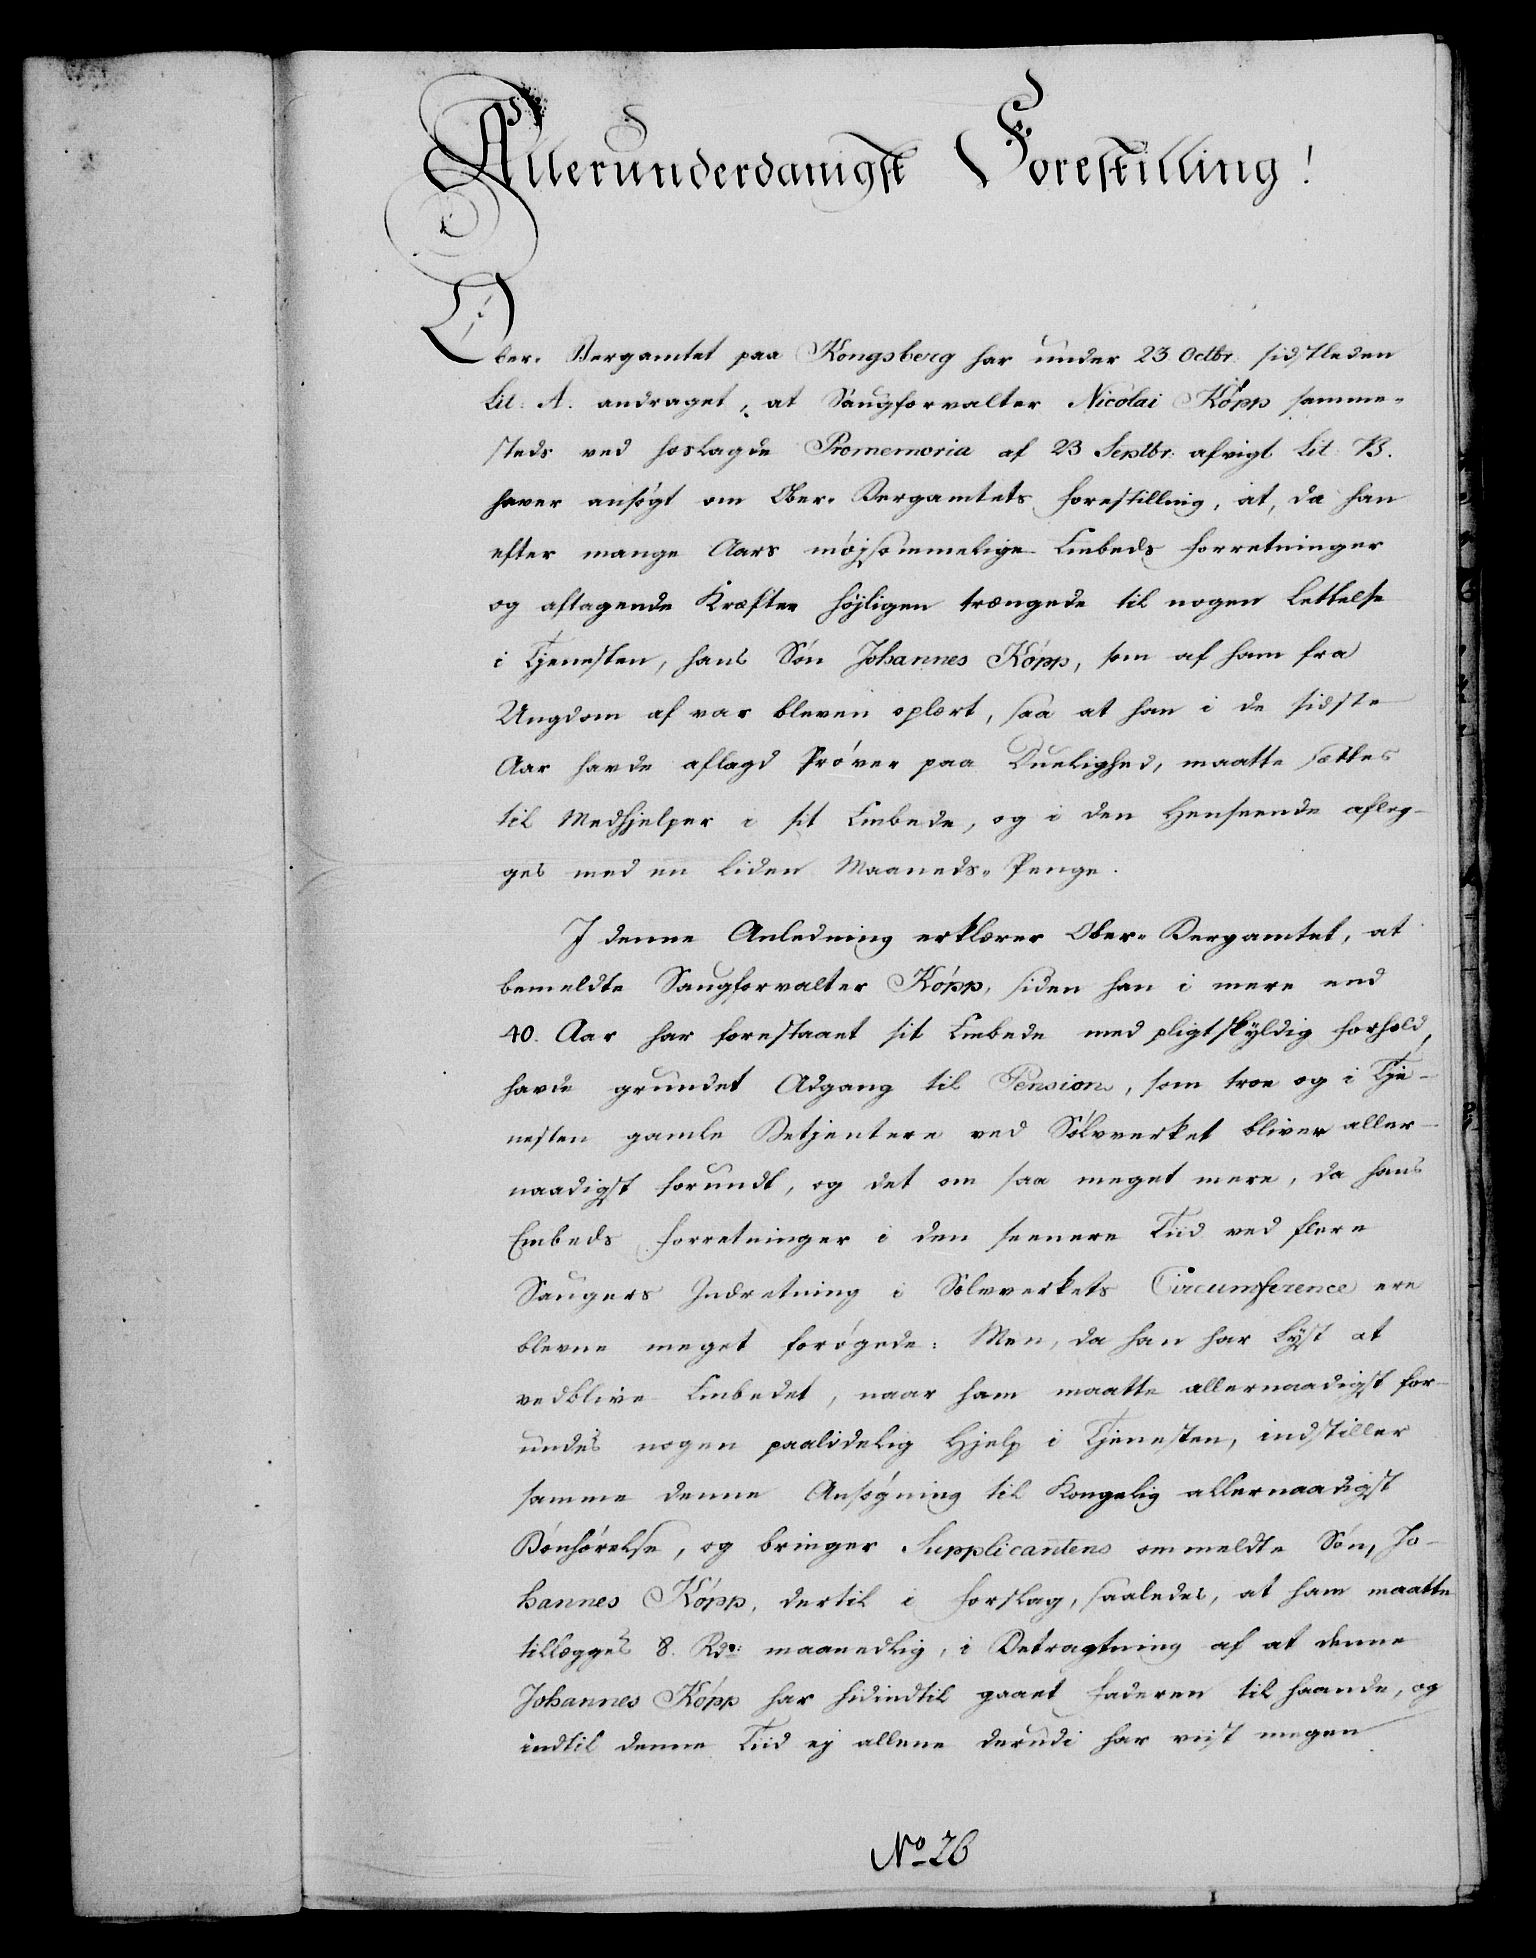 Allerunderdanigst Forestilling!
Ober-Bergamtet paa Kongsberg har under 23 Octbr: sidstleden
Lit: A. andraget, at Saugforvalter Nicolai Köpp samme-
steds ved hoslagde Promemoria af 23 Septbr: afvigt Lit: B.
haver ansøgt om Ober-Bergamtets Forestilling, at, da han
efter mange Aars møjsommelige Embeds Forretninger
og aftagende Kræfter højligen trængede til nogen Lettelse
i Tjenesten, hans Søn Johannes Köpp, som af ham fra
Ungdom af var bleven oplært, saa at han i de sidste
Aar havde aflagd Prøver paa Duelighed, maatte sættes
til Medhjelper i sit Embede, og i den Henseende aflæg-
ges med en liden Maaneds-Penge.
I denne Anledning erklærer Ober-Bergamtet, at
bemeldte Saugforvalter Köpp, siden han i mere end
40. Aar har forestaaet sit Embede med pligtskyldig Forhold,
havde grundet Adgang til Pension, som troe og i Tje-
nesten gamle Betjentere ved Sølvverket bliver aller-
naadigst forundt, og det om saa meget mere, da hans
Embeds Forretninger i den seenere Tiid ved flere
Saugers Indretning i Sølvverkets Circumference ere
blevne meget forøgede: Men, da han har Lyst at
vedblive Embedet, naar ham maatte allernaadigst for-
undes nogen paalidelig Hjelp i Tjenesten, indstiller
samme denne Ansøgning til Kongelig allernaadigst
Bønhørelse, og bringer Supplicantens ommeldte Søn, Jo-
hannes Köpp, dertil i Forslag, saaledes, at ham maatte
tillægges 8. Rdr: maanedlig, i Betragtning af at denne
Johannes Köpp har hidindtil gaaet Faderen til Haande, og
indtil denne Tiid ej allene derudi har viist megen
No 26